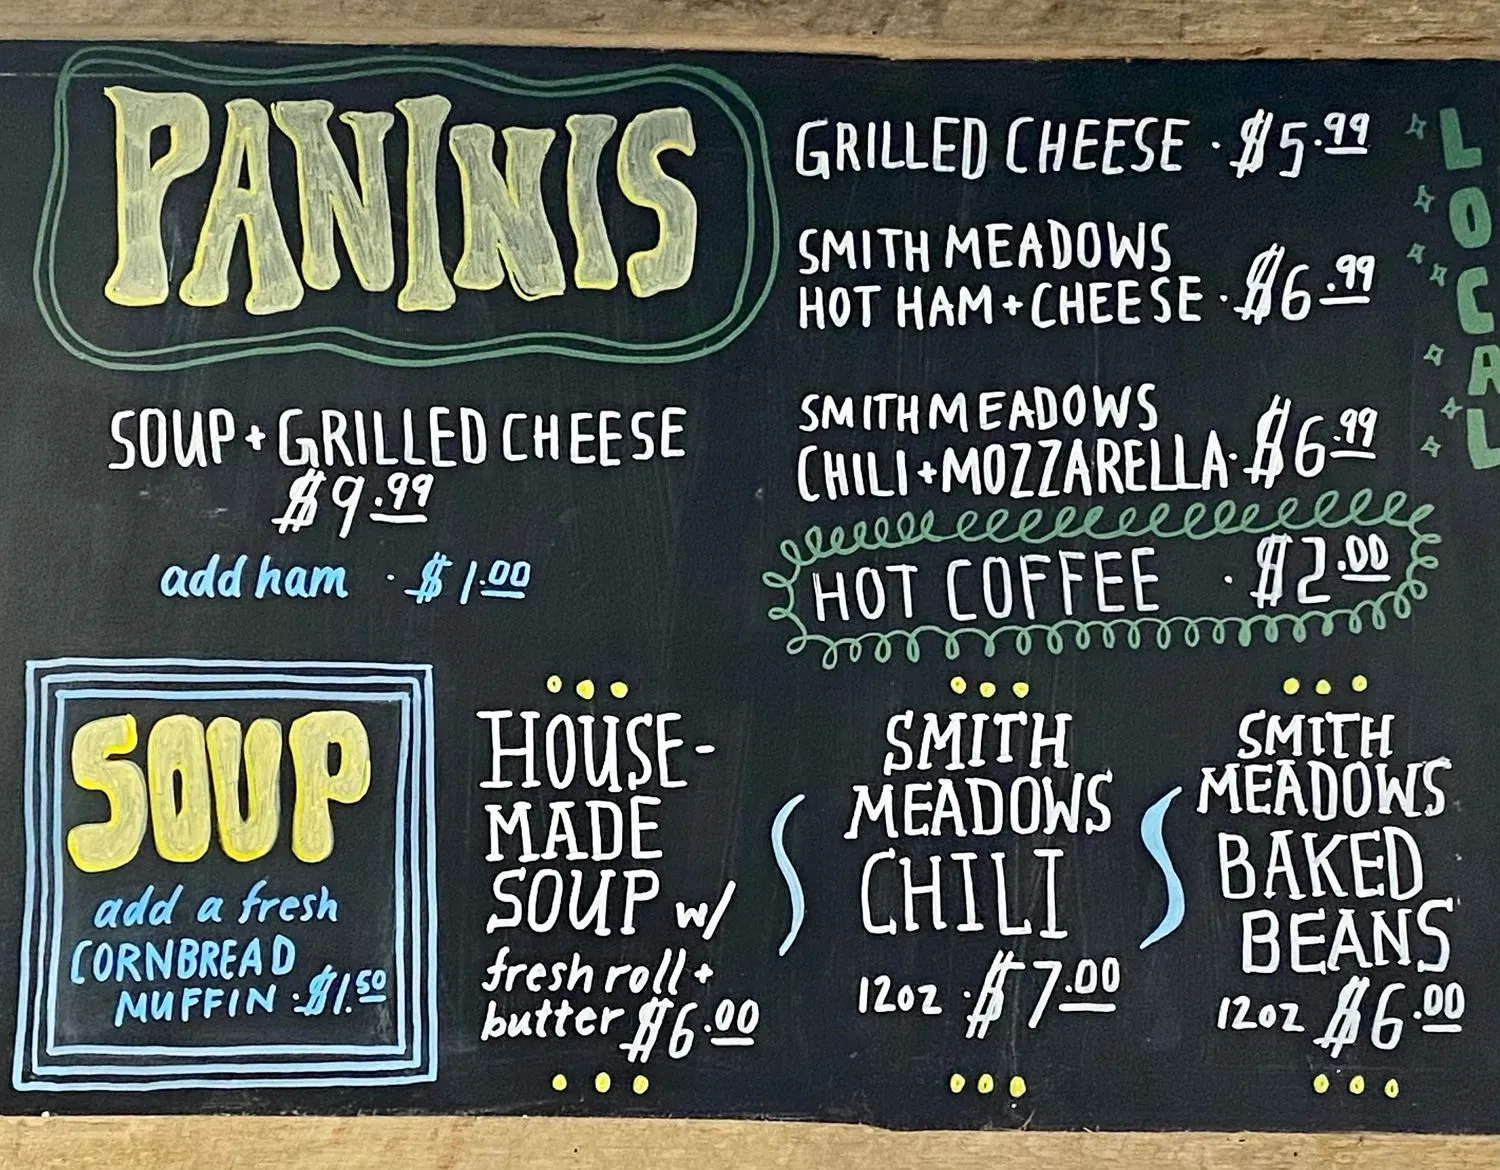 PANINIS
SOUP + GRILLED CHEESE
$9.99
add ham · $1.00
GRILLED CHEESE · $5.99
SMITH MEADOWS
HOT HAM + CHEESE · $6.99
SMITH MEADOWS
CHILI + MOZZARELLA · $6.99
HOT COFFEE · $2.00
LOCAL
SOUP
add a fresh
CORNBREAD
MUFFIN · $1.50
HOUSE-
MADE
SOUP w/
fresh roll +
butter $6.00
SMITH
MEADOWS
CHILI
12oz · $7.00
SMITH
MEADOWS
BAKED
BEANS
12oz $6.00